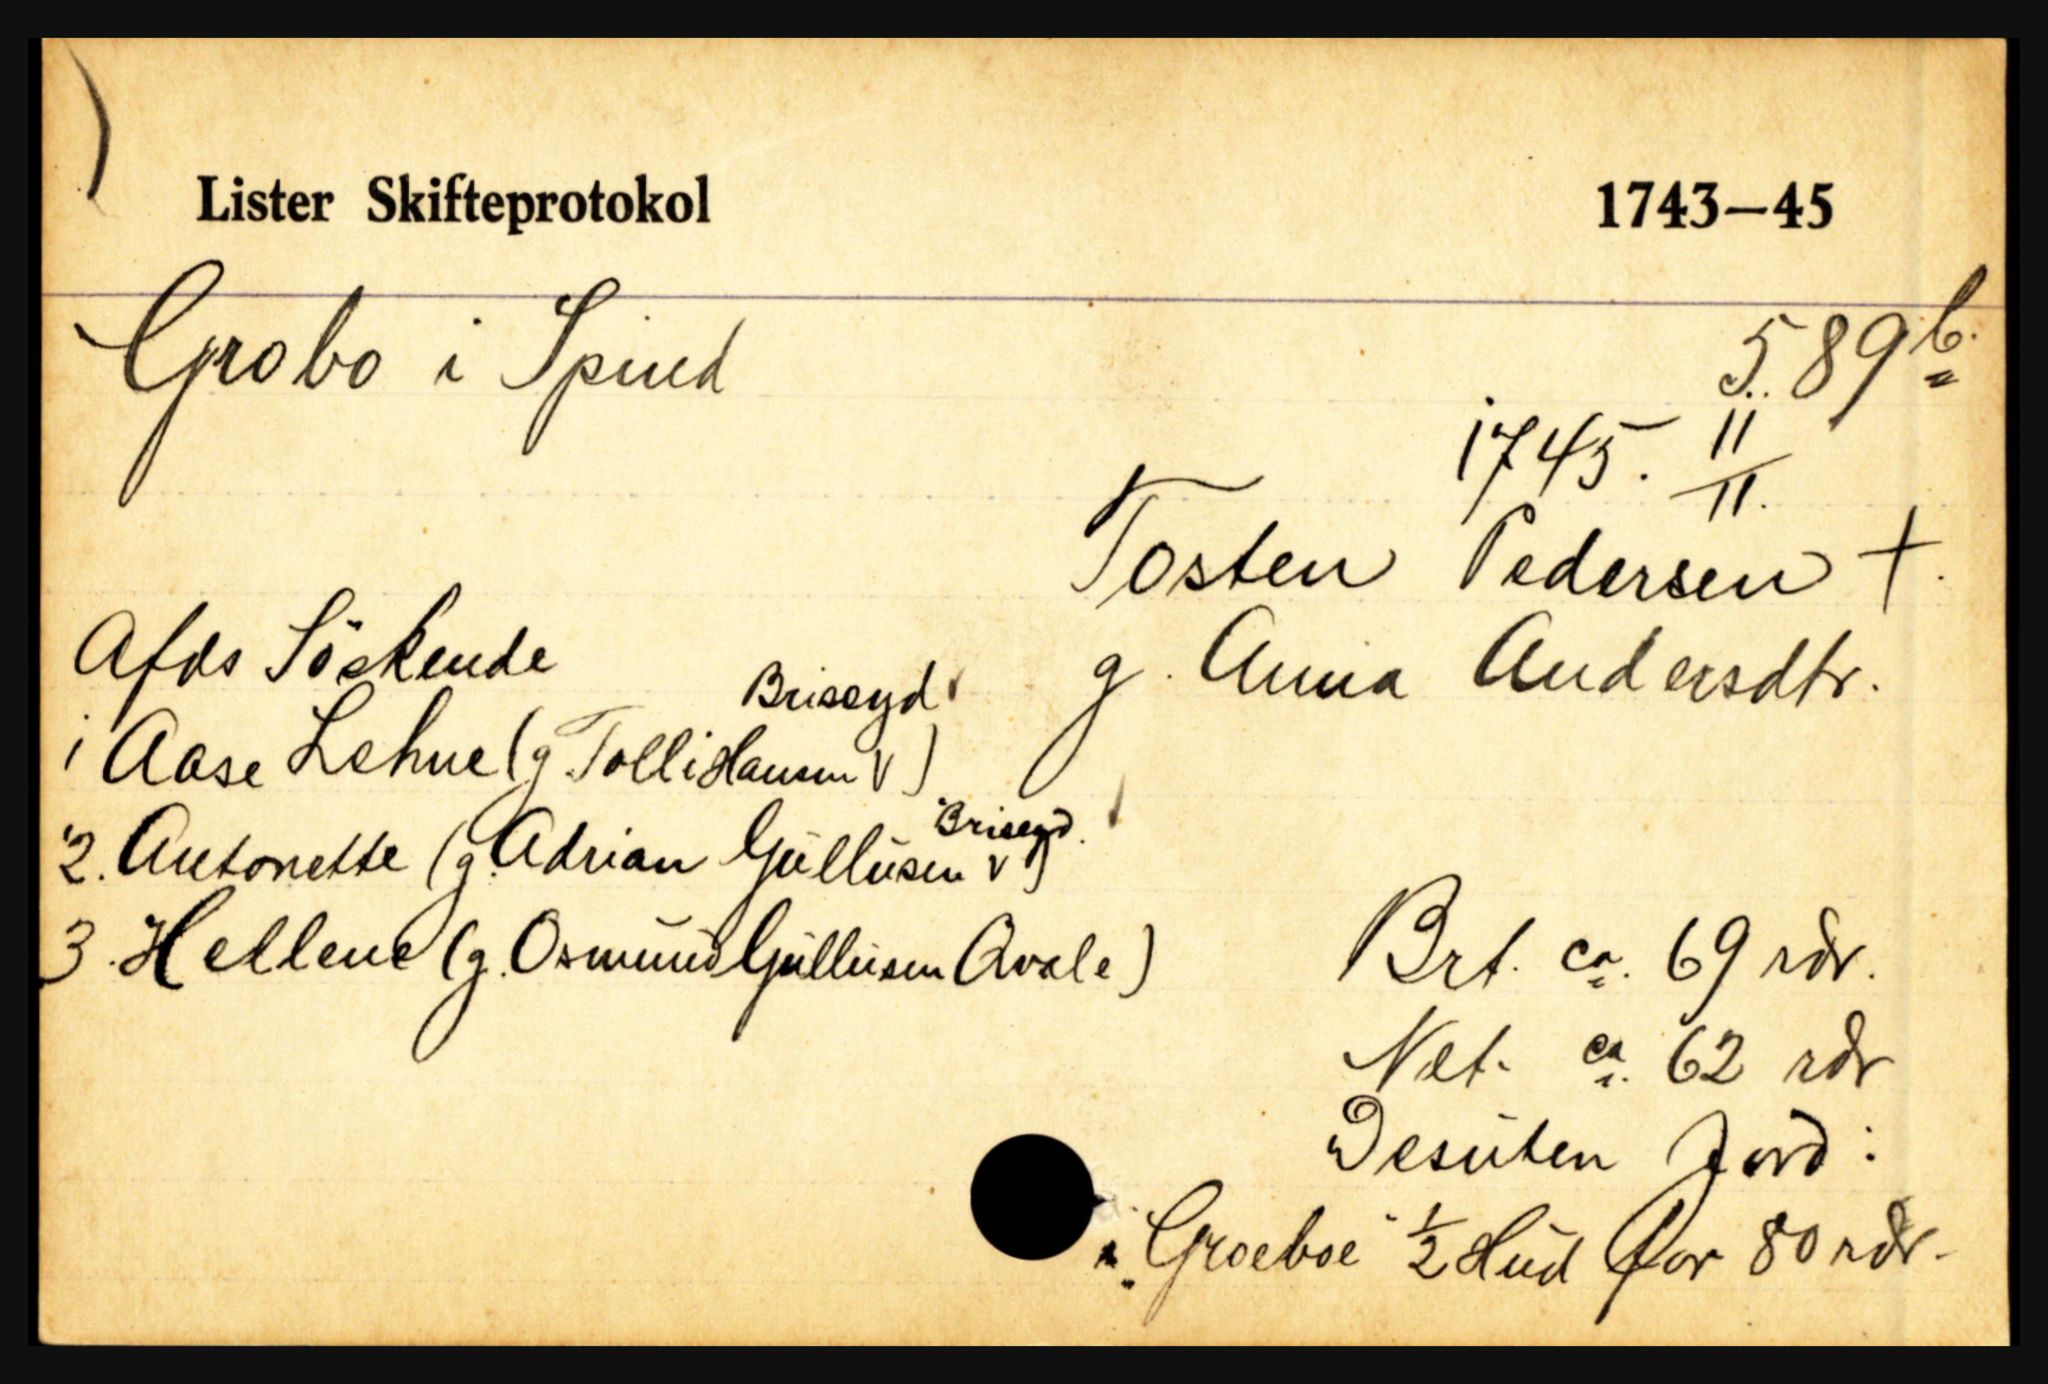 Lister Skifteprotokol 1743—45
Grobo i Spind
589 b.
1745. 11/11.
Tosten Pedersen +.
g. Anna Andersdtr.
Afds Söskende
1 Aase Lehne (g. Tolli Hansen Briseyd)
2. Antonette (g. Adrian Gullüsen Briseyd.)
3. Hellene (g. Osmünd Güllüsen Qvale)
Brt. ca. 69 rdr.
Net. ca. 62 rdr
Desüten Jord:
"Groeboe" 1/2 Hüd for 80 rdr.